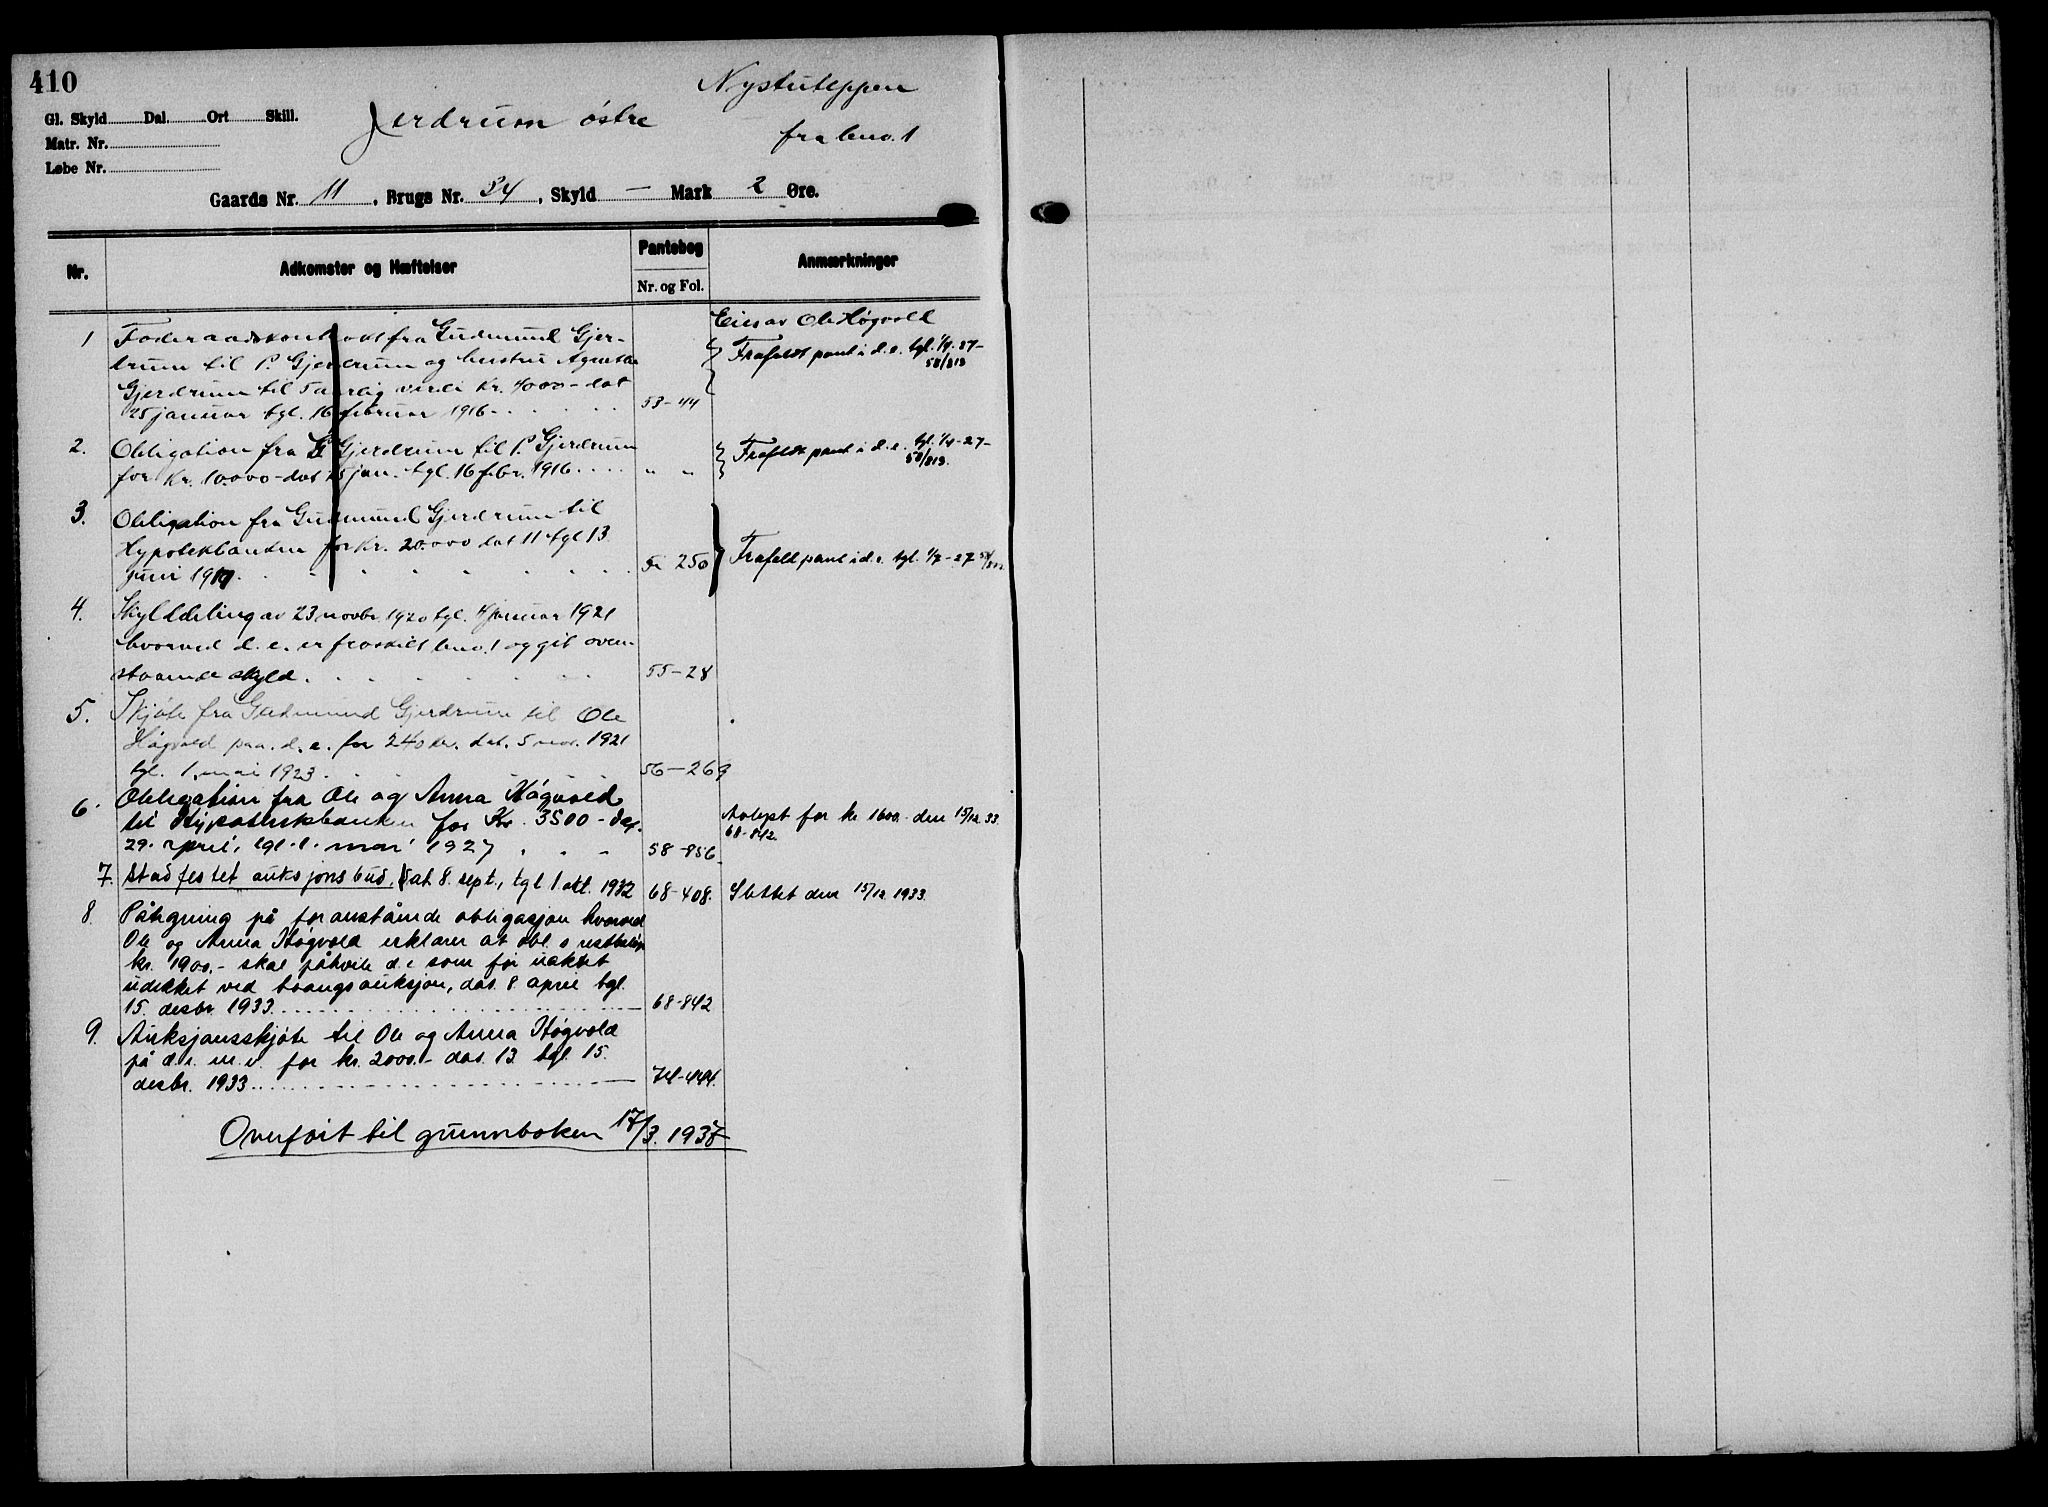 410
Nystuteppen
Gl. Skyld Dal. Ort Skill.
Jerdrum østre
fra bno. 1
Matr. Nr.
Løbe Nr.
Gaards Nr. 11, Brugs Nr. 34, Skyld — Mark 2 Øre.
Nr. Adkomster og Hæftelser Pantebog Nr. og Fol. Anmærkninger
Eies av Ole Høgvold
1 Føderaadskontrakt fra Gudmund Gjer-
drum til P. Gjerdrum og hustru Agnethe
Gjerdrum til 5 aarlig verdi Kr. 4000 - dat
25 januar tgl. 16 februar 1916 - . . . . 53-44
Frafaldt pant i d. e. tgl. 1/4-27-
58/813
2. Obligation fra G Gjerdrum til P. Gjerdrum
for Kr. 10.000 - dat 25 jan. tgl. 16 febr. 1916 . . . . " "
Frafaldt pant i d. e. tgl. 1/4-27-
58/813.
3. Obligation fra Gudmund Gjerdrum til
Hypotekbanken for Kr. 20.000 dat 11 tgl 13
juni 1917 . . . . . . . 250
Frafaldt pant i d. e. tgl.
4. Skylddeling av 23 novbr. 1920 tgl. 4 januar 1921
hvorved d. e. er fraskilt bno. 1 og git oven-
staaende skyld . . . . . . . 55-28
5. Skjøte fra Gudmund Gjerdrum til Ole
Høgvold paa d. e. for 240 kr. dat. 5 nov. 1921
tgl. 1. mai 1923. . . . . 56-269
6. Obligation fra Ole og Anna Høgvold
til Hypothekbanken for Kr. 3500 - dat.
29. april, tgl. 1. mai 1927 . . . 58-856
Avlyst for kr 1600.- den 15/12 33.
68-842.
7. Stadfestet auksjonsbud, dat 8. sept., tgl 1. okt. 1932 68-408. Slettet den 15/12 1933.
8. Påtegning på foranstående obligasjon hvorved
Ole og Anna Høgvold erklærer at obl. s restbeløp
kr. 1900.- skal påhvile d. e som før uaktet
udekket ved tvangsauksjon, dat. 8. april tgl.
15. desbr. 1933. . . . . . 68-842
9. Auksjonsskjøte til Ole og Anna Høgvold
på d. e. m. v. for kr. 2000.- dat. 13 tgl. 15.
desbr. 1933. . . . . . 74-444.
Overført til grunnboken 17/3. 1938